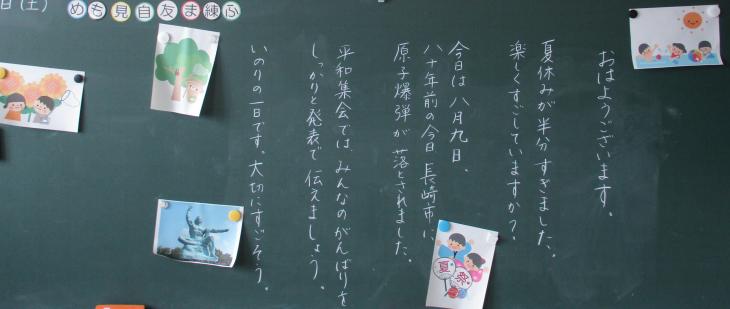 おはようございます。
夏休みが半分すぎました。
楽しくすごしていますか？
今日は八月九日、
八十年前の今日、長崎市に
原子爆弾が落とされました。
平和集会では、みんなのがんばりを
しっかりと発表で伝えましょう。
いのりの一日です。大切にすごそう。
日(土)
めも見自友ま練ふ
夏祭